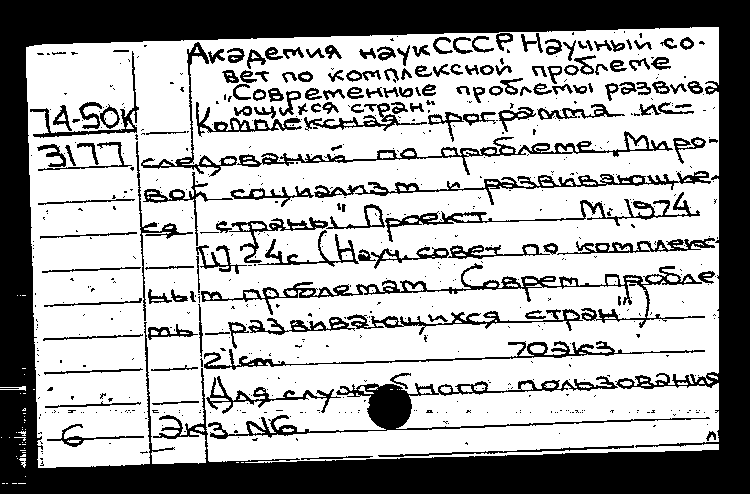 Академия наук СССР. Научный со-
вет по комплексной проблеме
„Современные проблемы развива
ющихся стран"
74-50К
Комплексная программа ис=
3177
следований по проблеме „Миро-
вой социализм и развивающие-
ся страны". Проект. М., 1974.
[1], 24с (Науч. совет по комплекс
ным проблемам „Соврем. пробле
мы развивающихся стран").
21 см. 70 экз.
Для служебного пользования
6 Экз. №6.